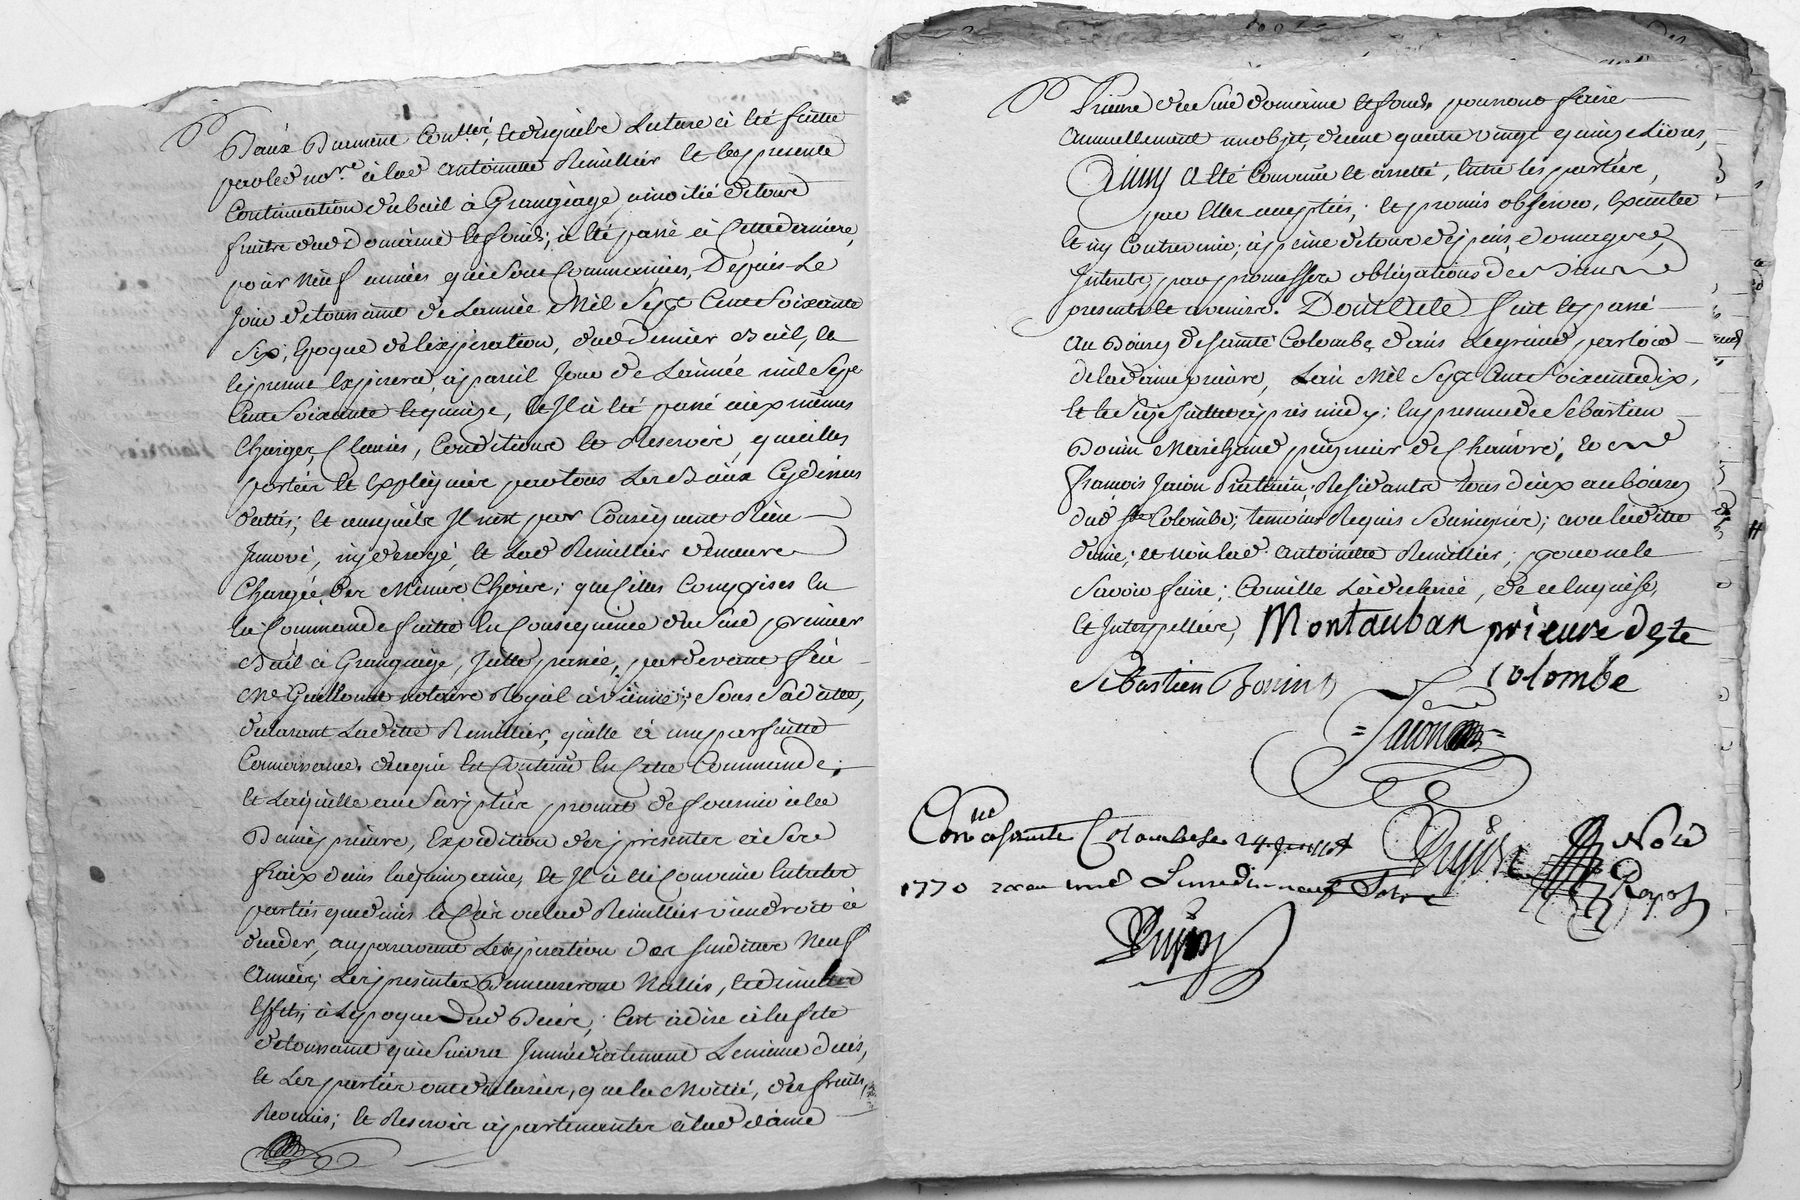 Baux Dument Conllé, et desquels Lecture a été faitte
par led no.re a lad antoinette Remillier et les presente
Continuation du bail à Grangéage, a moitié de tous
fruits dud Domaine et fonds; a été passé a Cette derniere,
pour Neuf années qui sont Commencées, Depuis Le
Jour de toussaint de L'année Mil Sept Cent Soixante
Six, Epoque de l'expiration, dud dernier Bail, et
Expirera, a pareil Jour de L'année mil Sept
Cent Soixante et quinze, et Il a été passé aux mêmes
Charges, Clauses, Conditions et Reserves, qu'elles
portées et Expliquées par tous Les Baux Cy dessus
dattés; et auxquels Il n'est par Consequent Rien
Innové, ny derogé, et Lad Remillier demeure
Chargée des Mêmes Choses; que Celles Comprises en
la Commande faitte en Consequence du Susd premier
Bail a Grangeage, Jcelle passée, pardevant feu
Me Guillomet notaire Royal a vienne; Sous Sa datte,
declarant Laditte Remillier, qu'elle a une parfaitte
Connoissance de ce qui est Contenu en Cette Commande;
et Laquelle au Surplus promet de fournir a lad
Dame prieure, Expedition des presentes a Ses
fraix dans la quinzaine, et Il a été Convenu Entre les
parties que dans le Cas ou lad Remillier viendroit a
deceder, auparavant L'expiration des susdittes Neuf
années; Les presentes Demeureront Nulles, et de nul
Effet, a L'epoque Dud Decés; C'est a dire a la fete
de toussaint qui Suivra Immediatement Le même decés,
et Les parties ont declarés, que la Moitié, des fruits
Reconnus; et Reserves appartenantes a lad dame
Prieure du Susd domaine et fonds pouvoient faire
annuellement un objet, de cent quatre vingt quinze Livres,
Ainsy a été Convenu et arretté, Entre les parties,
par Elles acceptées; et promis observer, Executer
et ny Contrevenir; a peine de tous depens, domages,
Interets, par promesses obligations de Biens
presents et avenirs. Dont acte Fait et passé
au Bourg de sainte Colombe, dans Le grand parloir
de lad dame prieure, L'an Mil Sept Cent Soixante dix,
et le Seize Juillet apres midy; En presence de Sebastien
Bonin Marchand peigneur de Chanvre, et de
François Jaion Praticien, Residants tous deux au bourg
dud Ste Colombe; temoins Requis Soussignés; avec laditte
dame; et non lad antoinette Remillier, pour ne le
Savoir faire; Comme Elle a declaré, de ce Enquise,
et Interpellée,
Montauban prieure de ste
Colombe
Sebastien Bonin
Jaion
Conlle a sainte Colombe le 24 Juillet
1770
Not.re
Royal